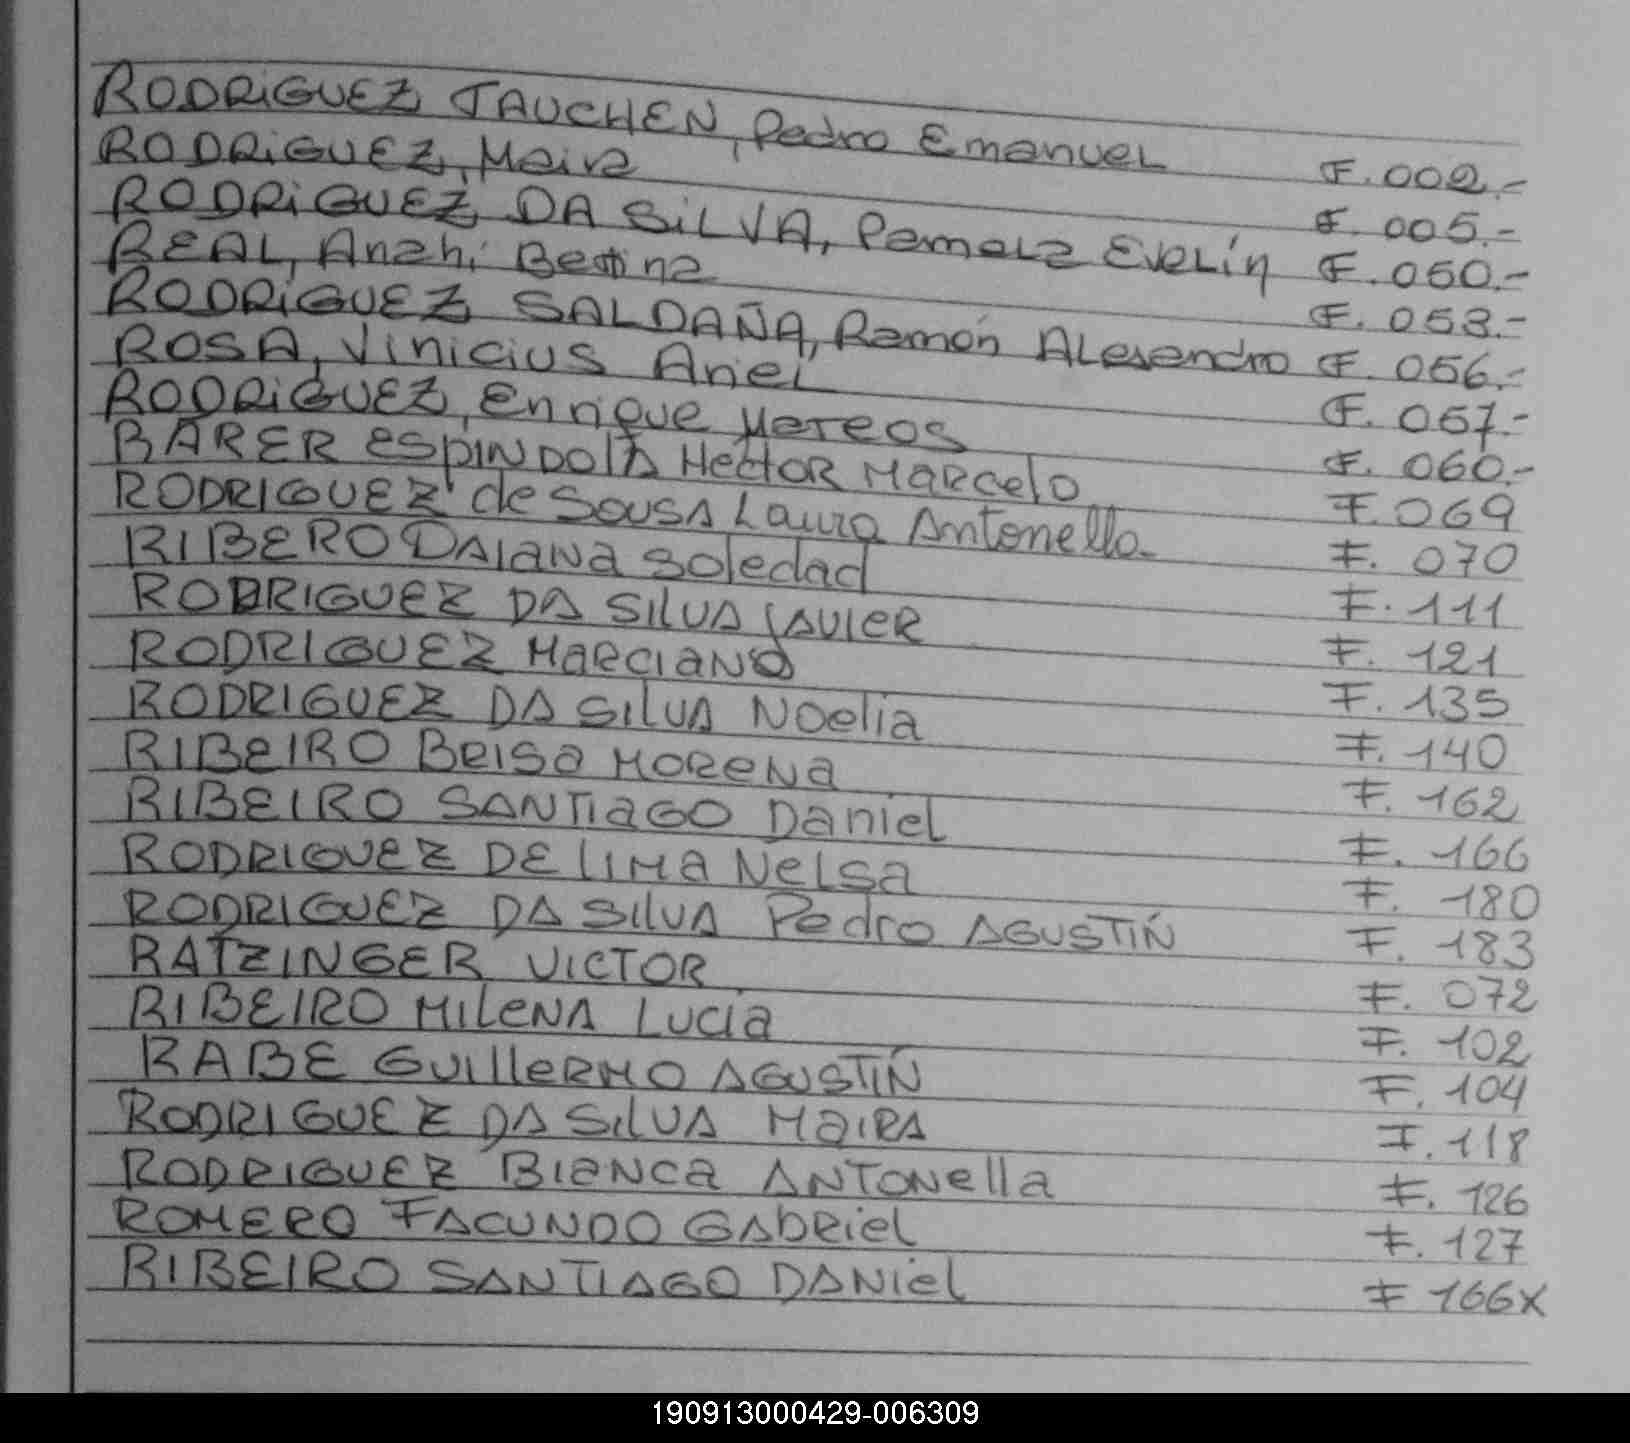 RODRIGUEZ TAUCHEN, Pedro Emanuel F. 002.-
RODRIGUEZ, Maira F. 005.-
RODRIGUEZ DA SILVA, Pamela Evelin F. 050.-
REAL, Anahi Bettina F. 053.-
RODRIGUEZ SALDAÑA, Ramón Alesandro F. 056.-
ROSA, Vinicius Ariel F. 057.-
RODRIGUEZ, Enrique Mateos F. 060.-
RARER ESPINDOLA Hector Marcelo F. 069
RODRIGUEZ de SOUSA Laura Antonella F. 070
RIBERO DAIANA Soledad F. 111
RODRIGUEZ DA SILVA JAVIER F. 121
RODRIGUEZ MARCIANO F. 135
RODRIGUEZ DA SILVA Noelia F. 140
RIBEIRO BRISA MORENA F. 162
RIBEIRO SANTIAGO Daniel F. 166
RODRIGUEZ DE LIMA Nelsa F. 180
RODRIGUEZ DA SILVA Pedro AGUSTÍN F. 183
RATZINGER VICTOR F. 072
RIBEIRO MILENA LUCIA F. 102
RABE GUILLERMO AGUSTÍN F. 104
RODRIGUEZ DA SILVA MAIRA F. 118
RODRIGUEZ BIANCA ANTONella F. 126
ROMERO FACUNDO GABRIEL F. 127
RIBEIRO SANTIAGO DANIEL F 166x
190913000429-006309